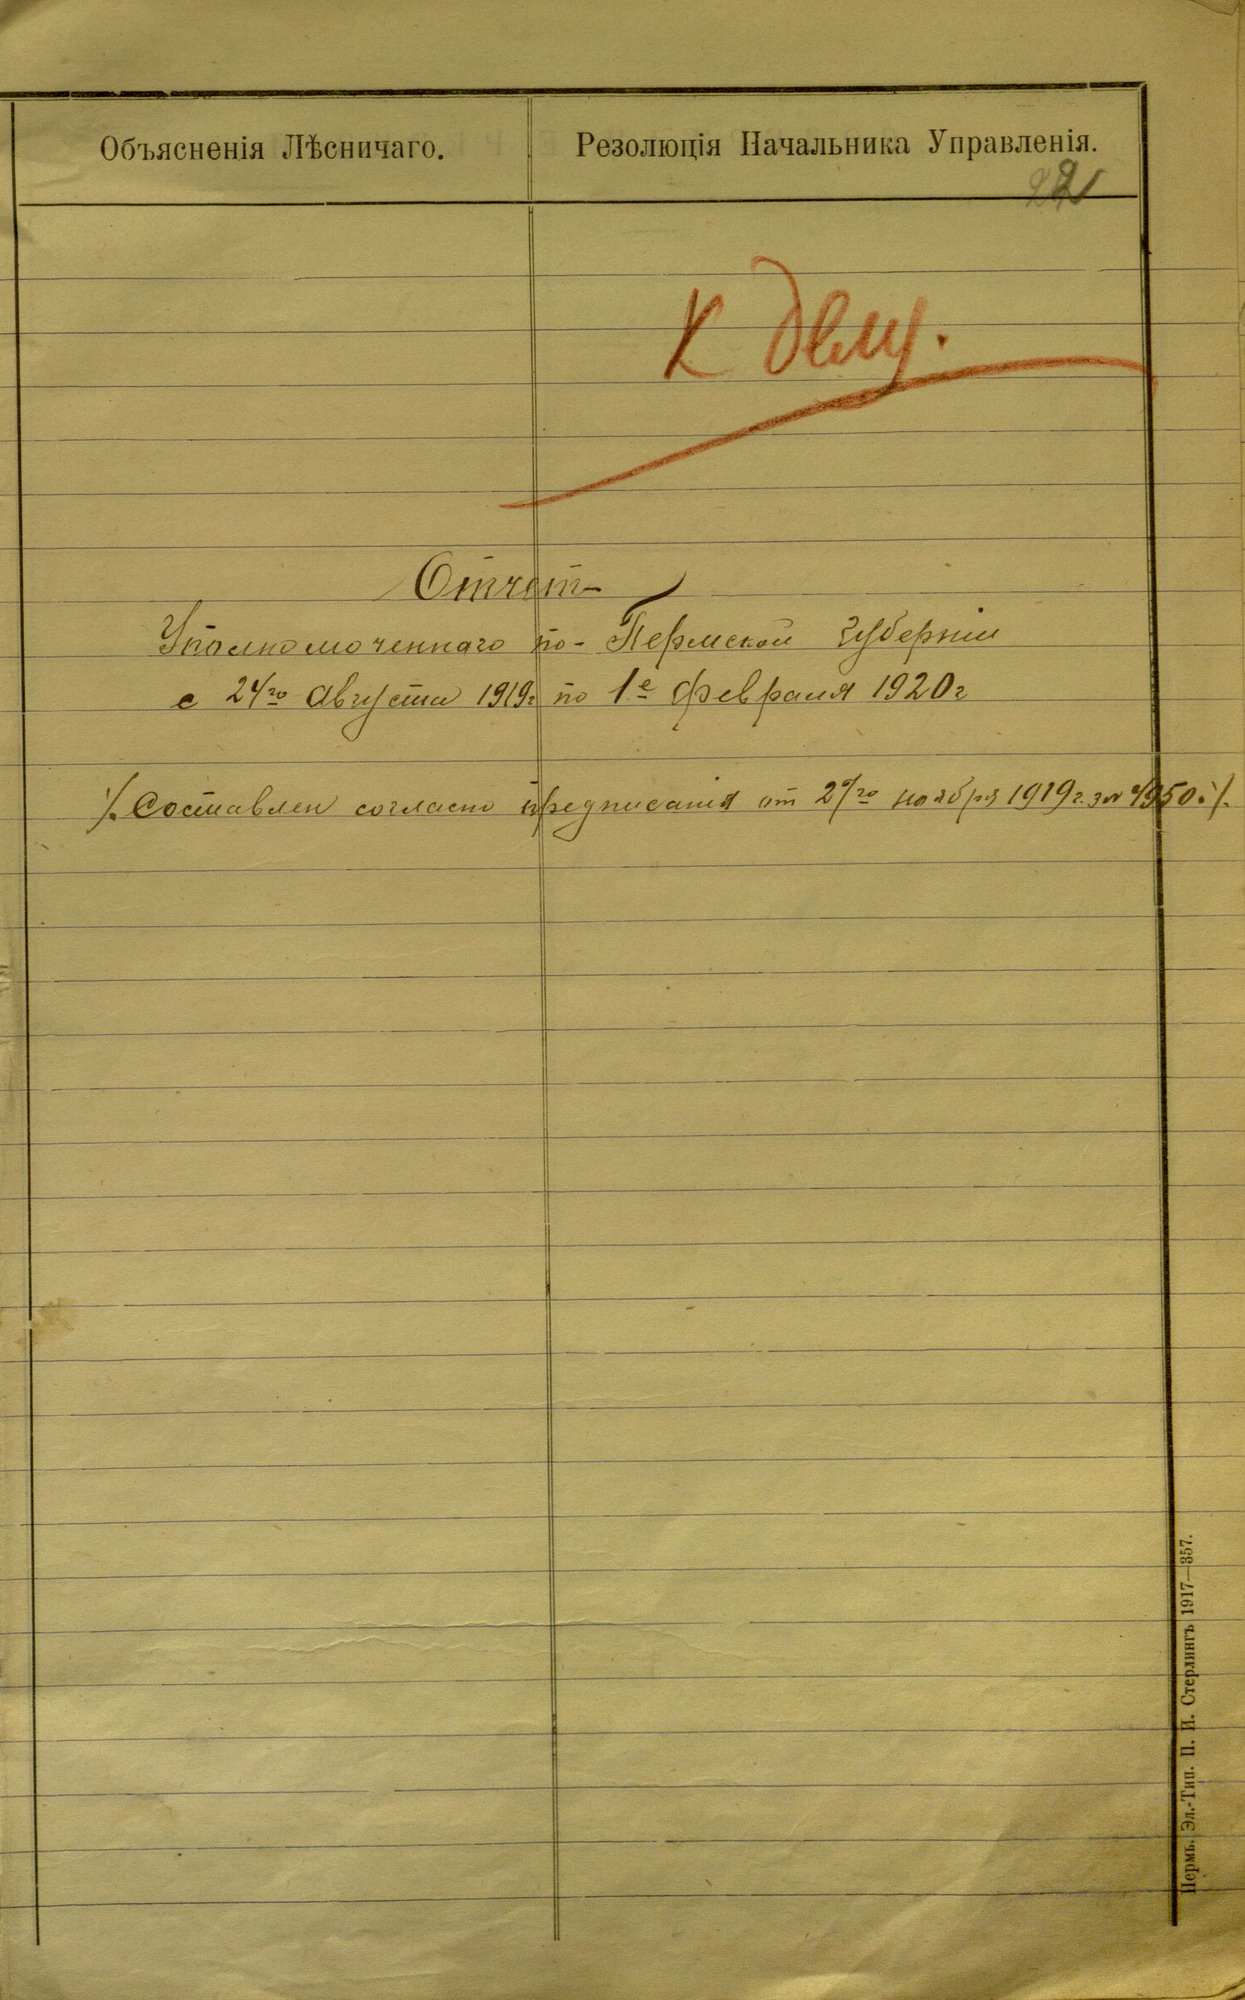 Объясненія Лѣсничаго.
Резолюція Начальника Управленія.
К делу.
Отчет
Уполномоченнаго по Пермской Губерніи
с 24го Августа 1919г по 1е февраля 1920г
Составлен согласно предписанія от ноября 1919г. за №
Пермь. Эл.-Тип. П. И. Стерлингъ 1917—357.